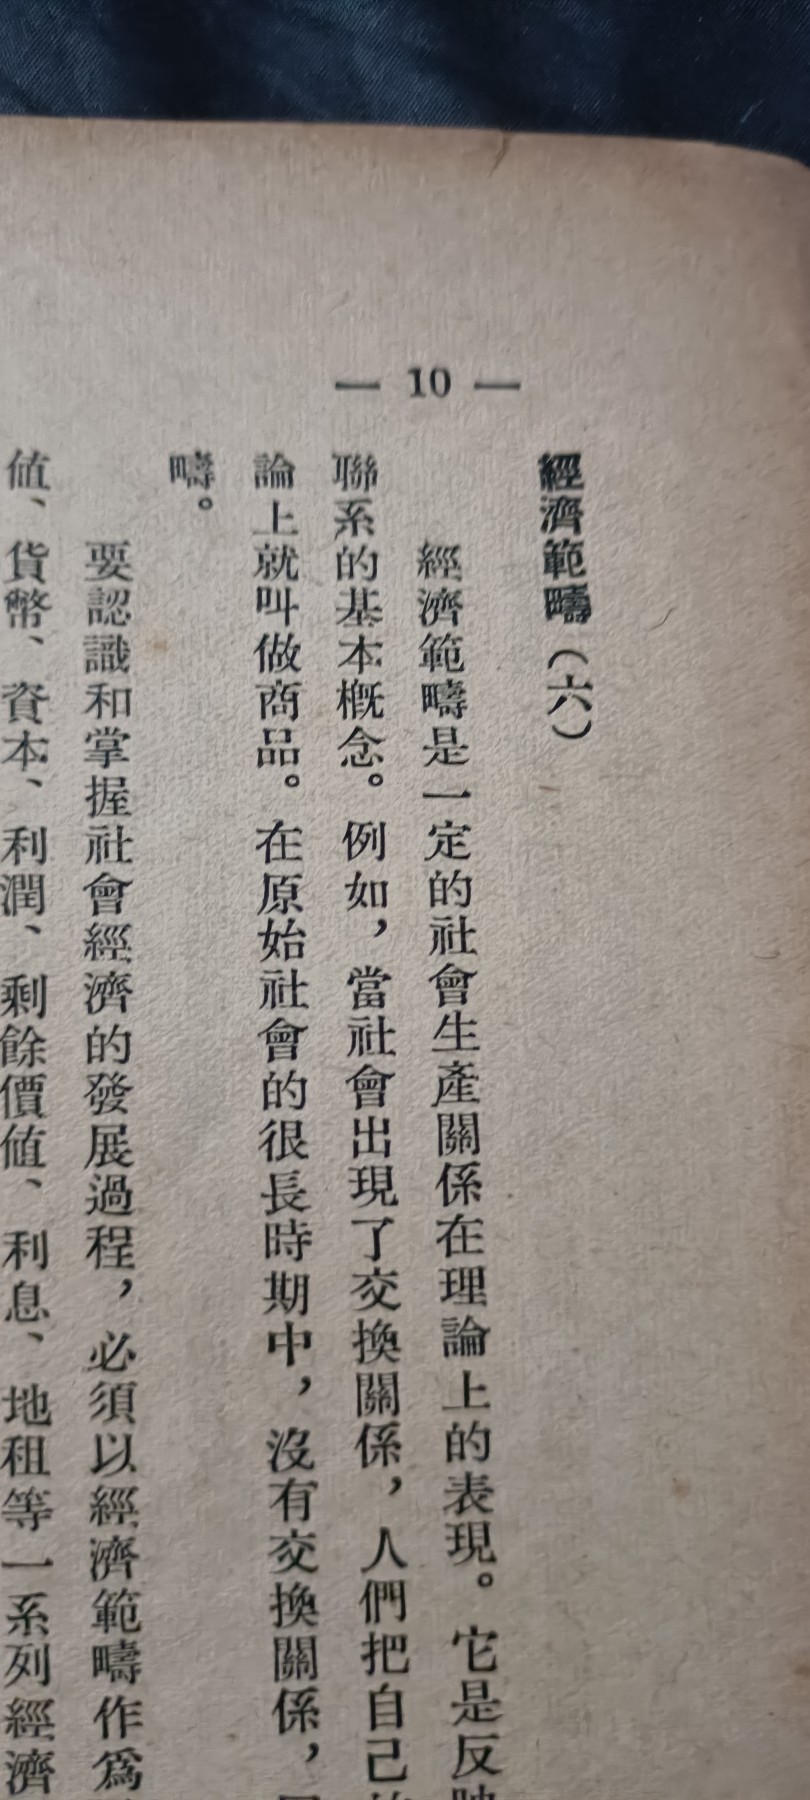 — 10 —
經濟範疇（六）
經濟範疇是一定的社會生產關係在理論上的表現。它是反映
聯系的基本概念。例如，當社會出現了交換關係，人們把自己
論上就叫做商品。在原始社會的很長時期中，沒有交換關係，
疇。
要認識和掌握社會經濟的發展過程，必須以經濟範疇作爲
值、貨幣、資本、利潤、剩餘價值、利息、地租等一系列經濟